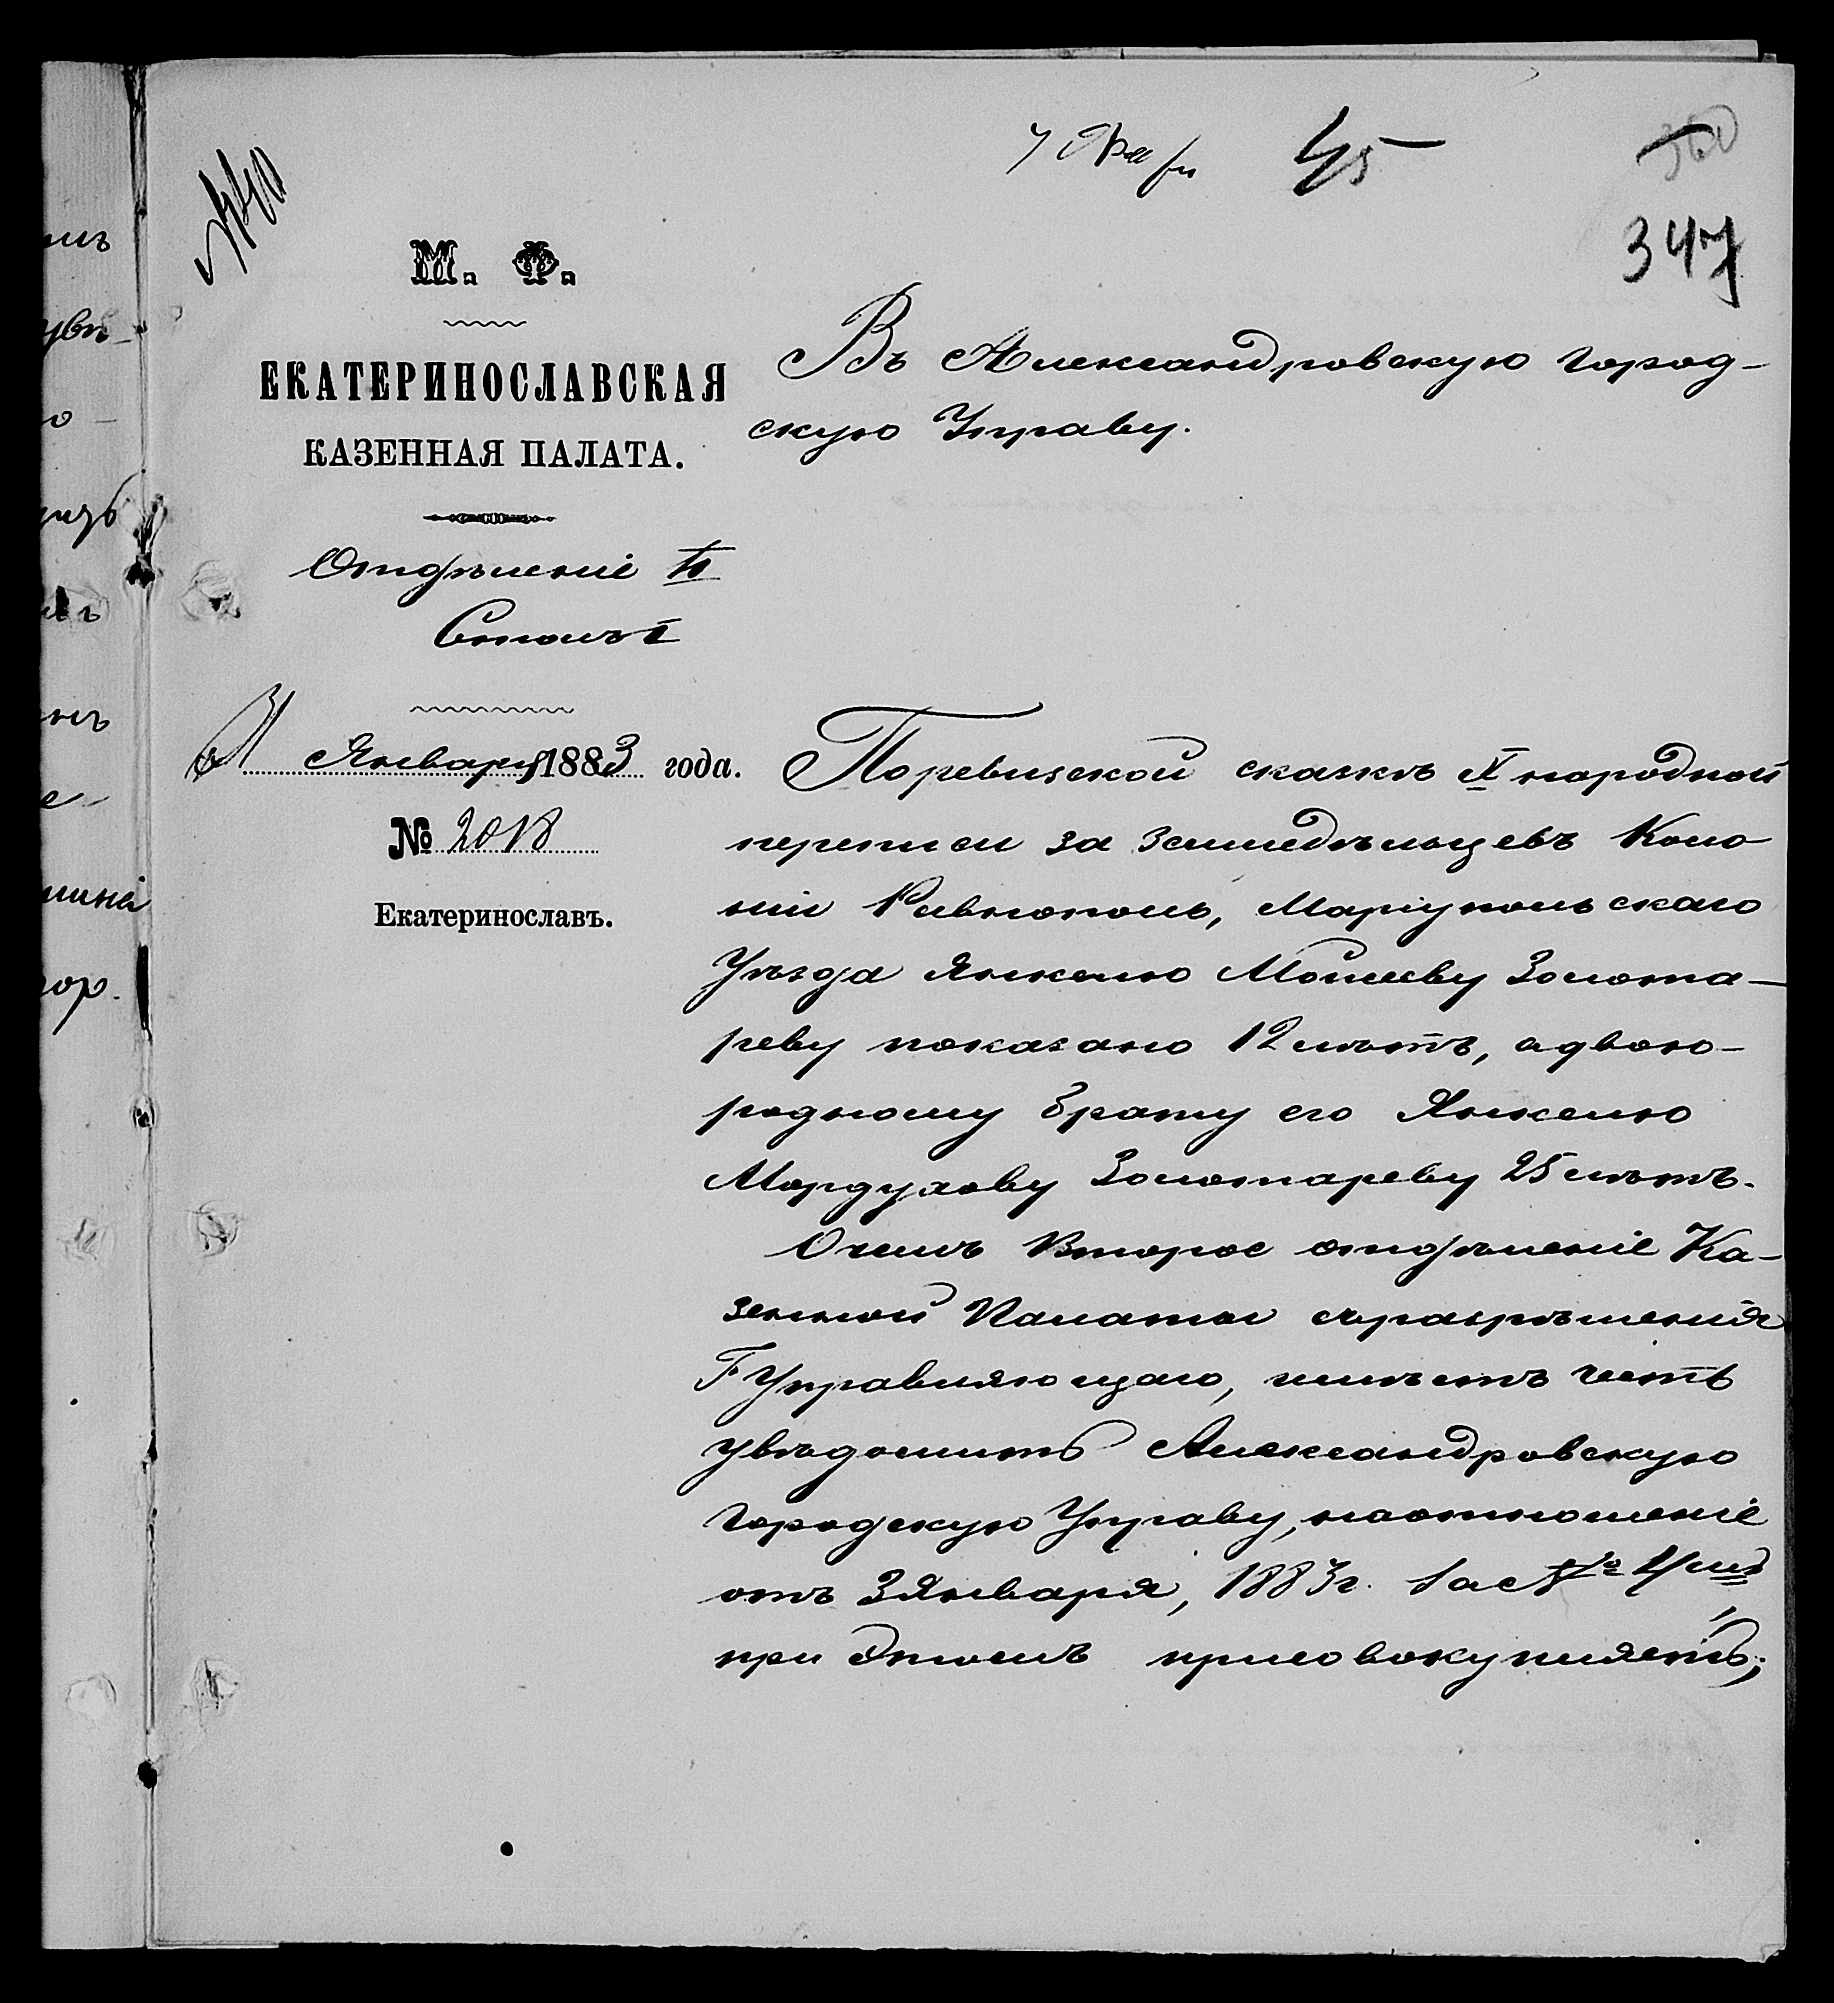 45
347
М. Ф.
ЕКАТЕРИНОСЛАВСКАЯ
КАЗЕННАЯ ПАЛАТА.
Отдѣленіе II
Столъ I
Января 1883 года.
№ 2018
Екатеринославъ.
Въ Александровскую Город-
скую Управу.
По ревизской сказкѣ X народной
переписи за земледѣльцевъ Коло
ніи Ровнополь, Маріупольскаго
Уѣзда Янкелю Мойсееву Золота-
реву показано 12 лѣтъ, а двою-
родному брату его Янкелю
Мордухову Золотареву 25 лѣтъ.
О чемъ Второе отдѣленіе Ка-
зенной Палаты съ разрѣшенія
Г Управляющаго, имѣетъ честь
увѣдомить Александровскую
Городскую Управу, на отношеніе
отъ 3 Января, 1883 г. за №
при этомъ присовокупляетъ;